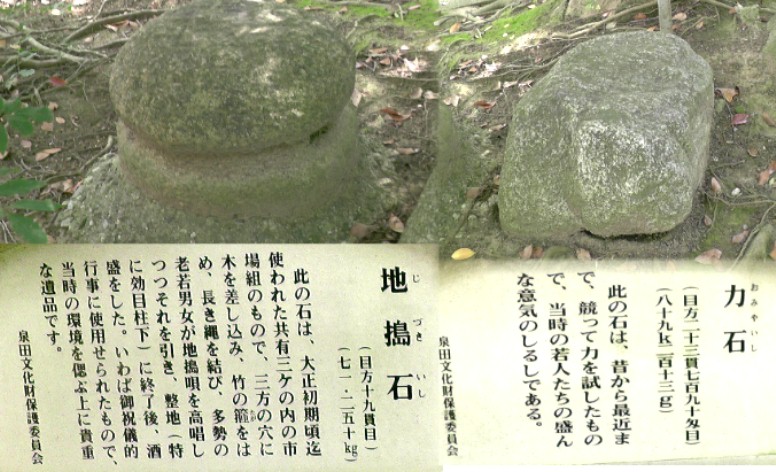 地搗石
じづきいし
(目方十九貫目)
(七一・二五十kg)
此の石は、大正初期頃迄
使われた共有三ケの内の市
場組のもので、三方の穴に
木を差し込み、竹の箍をは
め、長き縄を結び、多勢の
老若男女が地搗唄を高唱し
つつそれを引き、整地(特
に効目柱下)に終了後、酒
盛をした。いわば御祝儀的
行事に使用せられたもので、
当時の環境を偲ぶ上に貴重
な遺品です。
泉田文化財保護委員会
力石
おみやいし
(目方二十三貫七百九十匁目)
(八十九k二百十三g)
此の石は、昔から最近ま
で、競って力を試したもの
で、当時の若人たちの盛ん
な意気のしるしである。
泉田文化財保護委員会